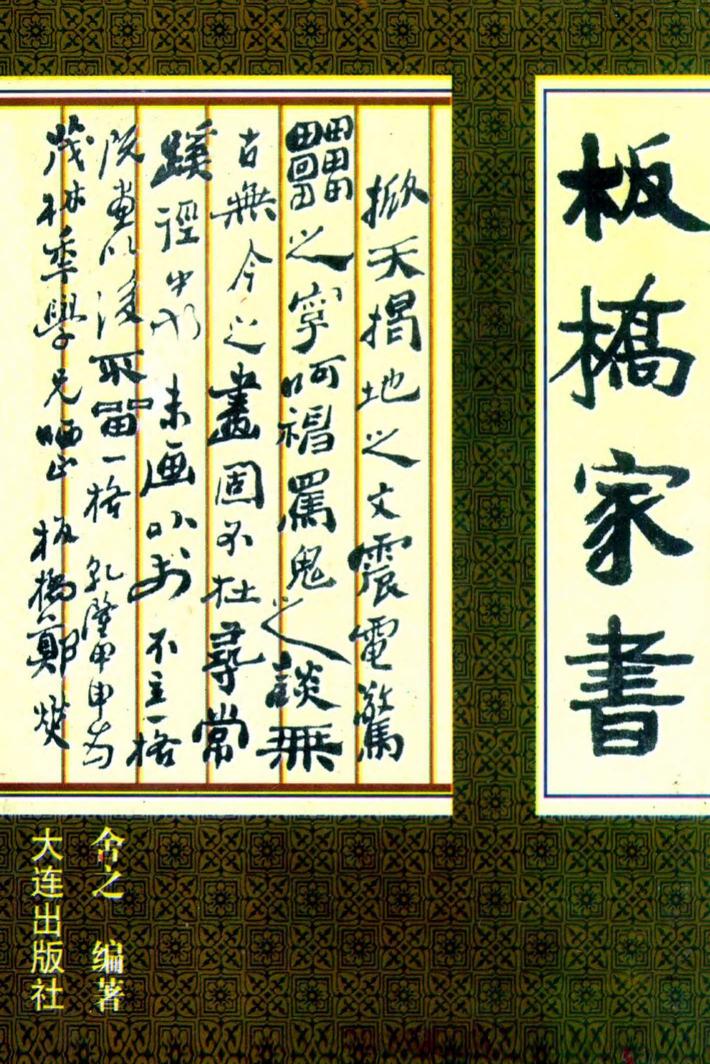 板橋家書
掀天揭地之文震電驚
之字呵神罵鬼之談無
古無今之畫固不在尋常
蹊徑中也未画以前不立一格
既画以後不留一格 乾隆甲申為
茂林年學兄哂正 板橋鄭燮
舍之 编著
大连出版社